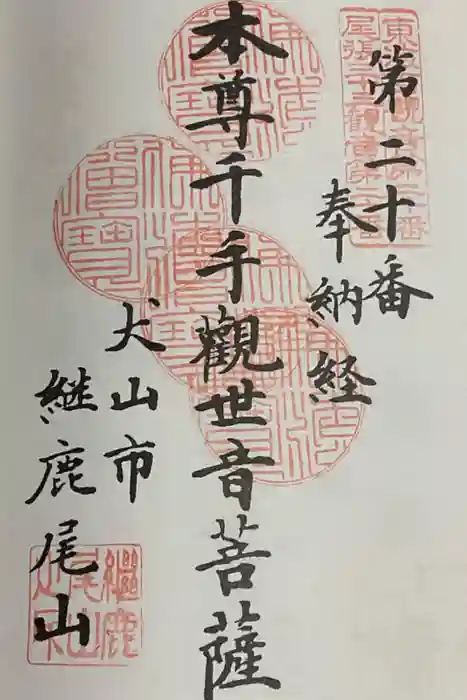 第二十番
奉納経
本尊千手觀世音菩薩
犬山市
継鹿尾山
佛法僧寶